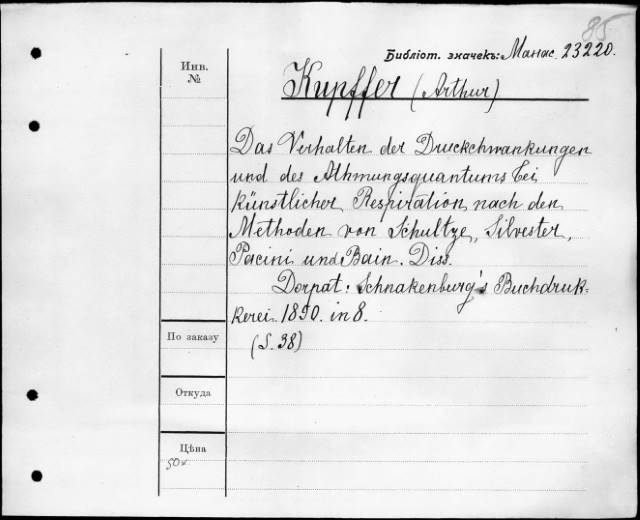 85
Библіот. значекъ: Манас. 23220.
Инв.
№
Kupffer (Arthur)
Das Verhalten der Druckchwankungen
und des Athmungsquantums bei
künstlicher Respiration nach den
Methoden von Schultze, Silvester,
Pacini und Bain. Diss.
Dorpat: Schnakenburg's Buchdruk-
kerei. 1890. in 8.
По заказу
(S. 38)
Откуда
Цѣна
50к.